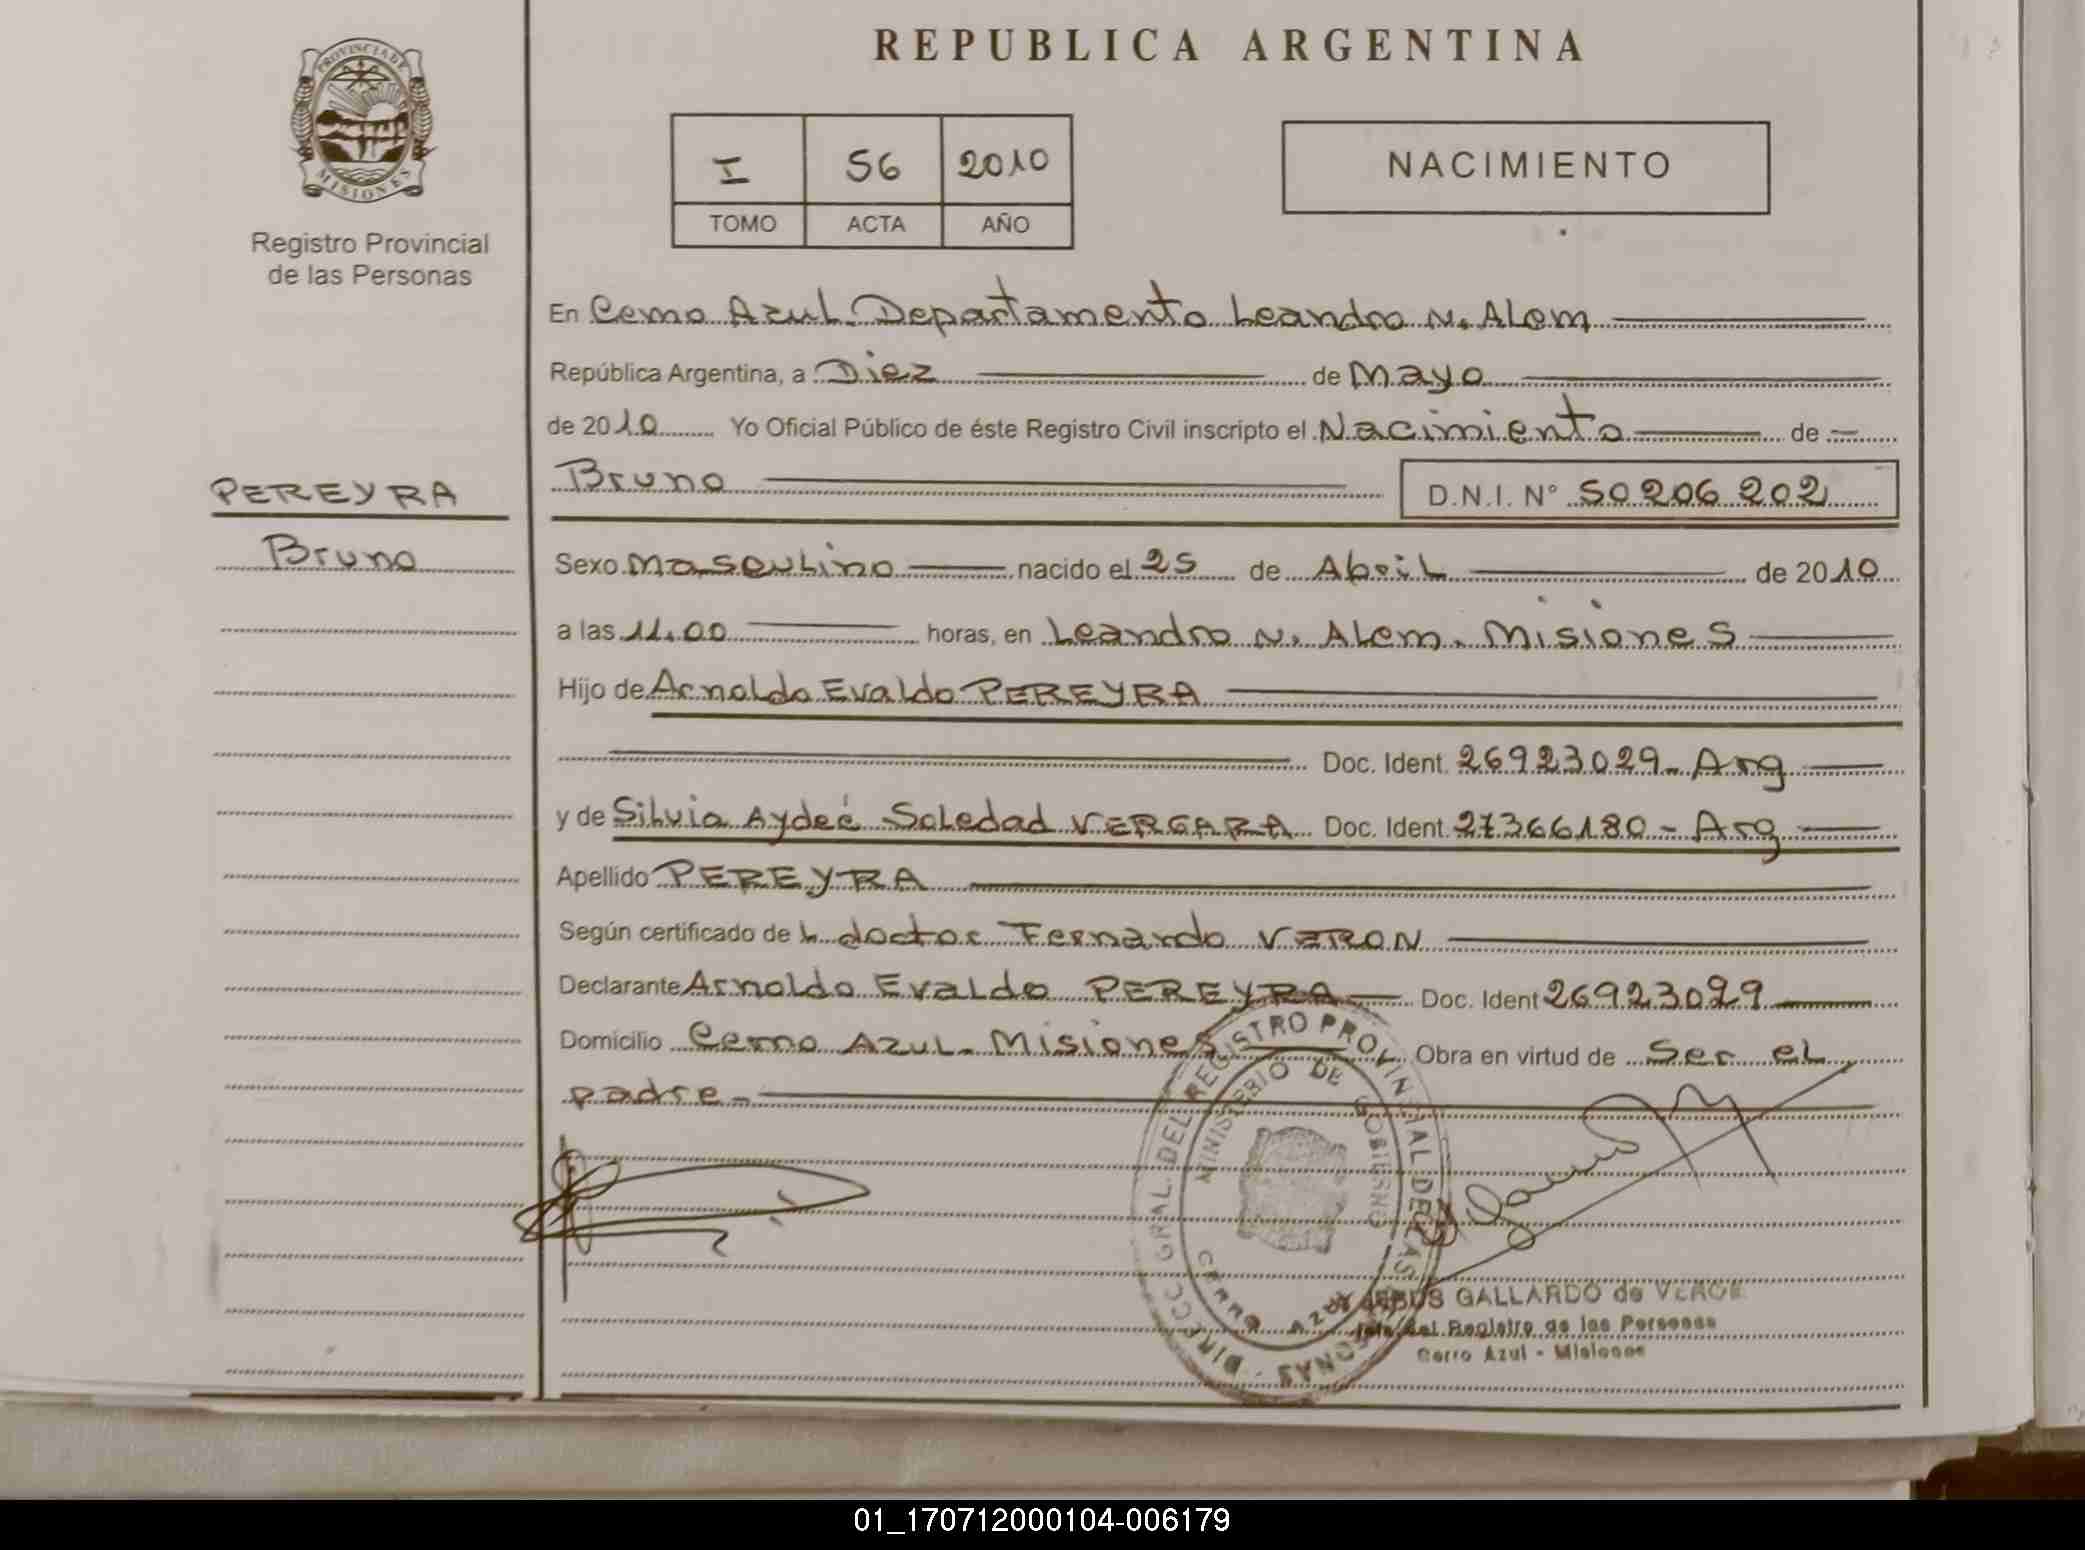 REPUBLICA ARGENTINA
PROVINCIA DE MISIONES
Registro Provincial
de las Personas
I 56 2010
TOMO ACTA AÑO
NACIMIENTO
En Cerro Azul. Departamento Leandro N. Alem
República Argentina, a Diez de Mayo
de 2010 Yo Oficial Público de éste Registro Civil inscripto el Nacimiento de
Bruno D.N.I. N° 50206202
PEREYRA
Bruno
Sexo Masculino nacido el 25 de Abril de 2010
a las 11.00 horas, en Leandro N. Alem. Misiones
Hijo de Arnoldo Evaldo PEREYRA
Doc. Ident. 26923029- Arg
y de Silvia Aydeé Soledad VERGARA Doc. Ident. 27366180- Arg
Apellido PEREYRA
Según certificado de L doctor Fernando VERON
Declarante Arnoldo Evaldo PEREYRA Doc. Ident 26923029
Domicilio Cerro Azul. Misiones Obra en virtud de Ser el
padre-
DIRECC. GRAL. DEL REGISTRO PROVINCIAL DE LAS PERSONAS
MINISTERIO DE GOBIERNO
CERRO AZUL
JESUS GALLARDO de
Jefe del Registro de las Personas
Cerro Azul - Misiones
01_170712000104-006179